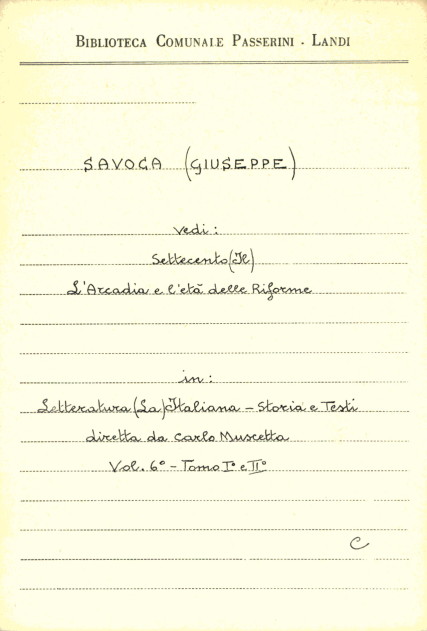 BIBLIOTECA COMUNALE PASSERINI - LANDI
SAVOCA (GIUSEPPE)
vedi:
Settecento (Il)
L'Arcadia e l'età delle Riforme
in:
Letteratura (La) Italiana - Storia e Testi
diretta da Carlo Muscetta
Vol. 6° - Tomo I° e II°
C